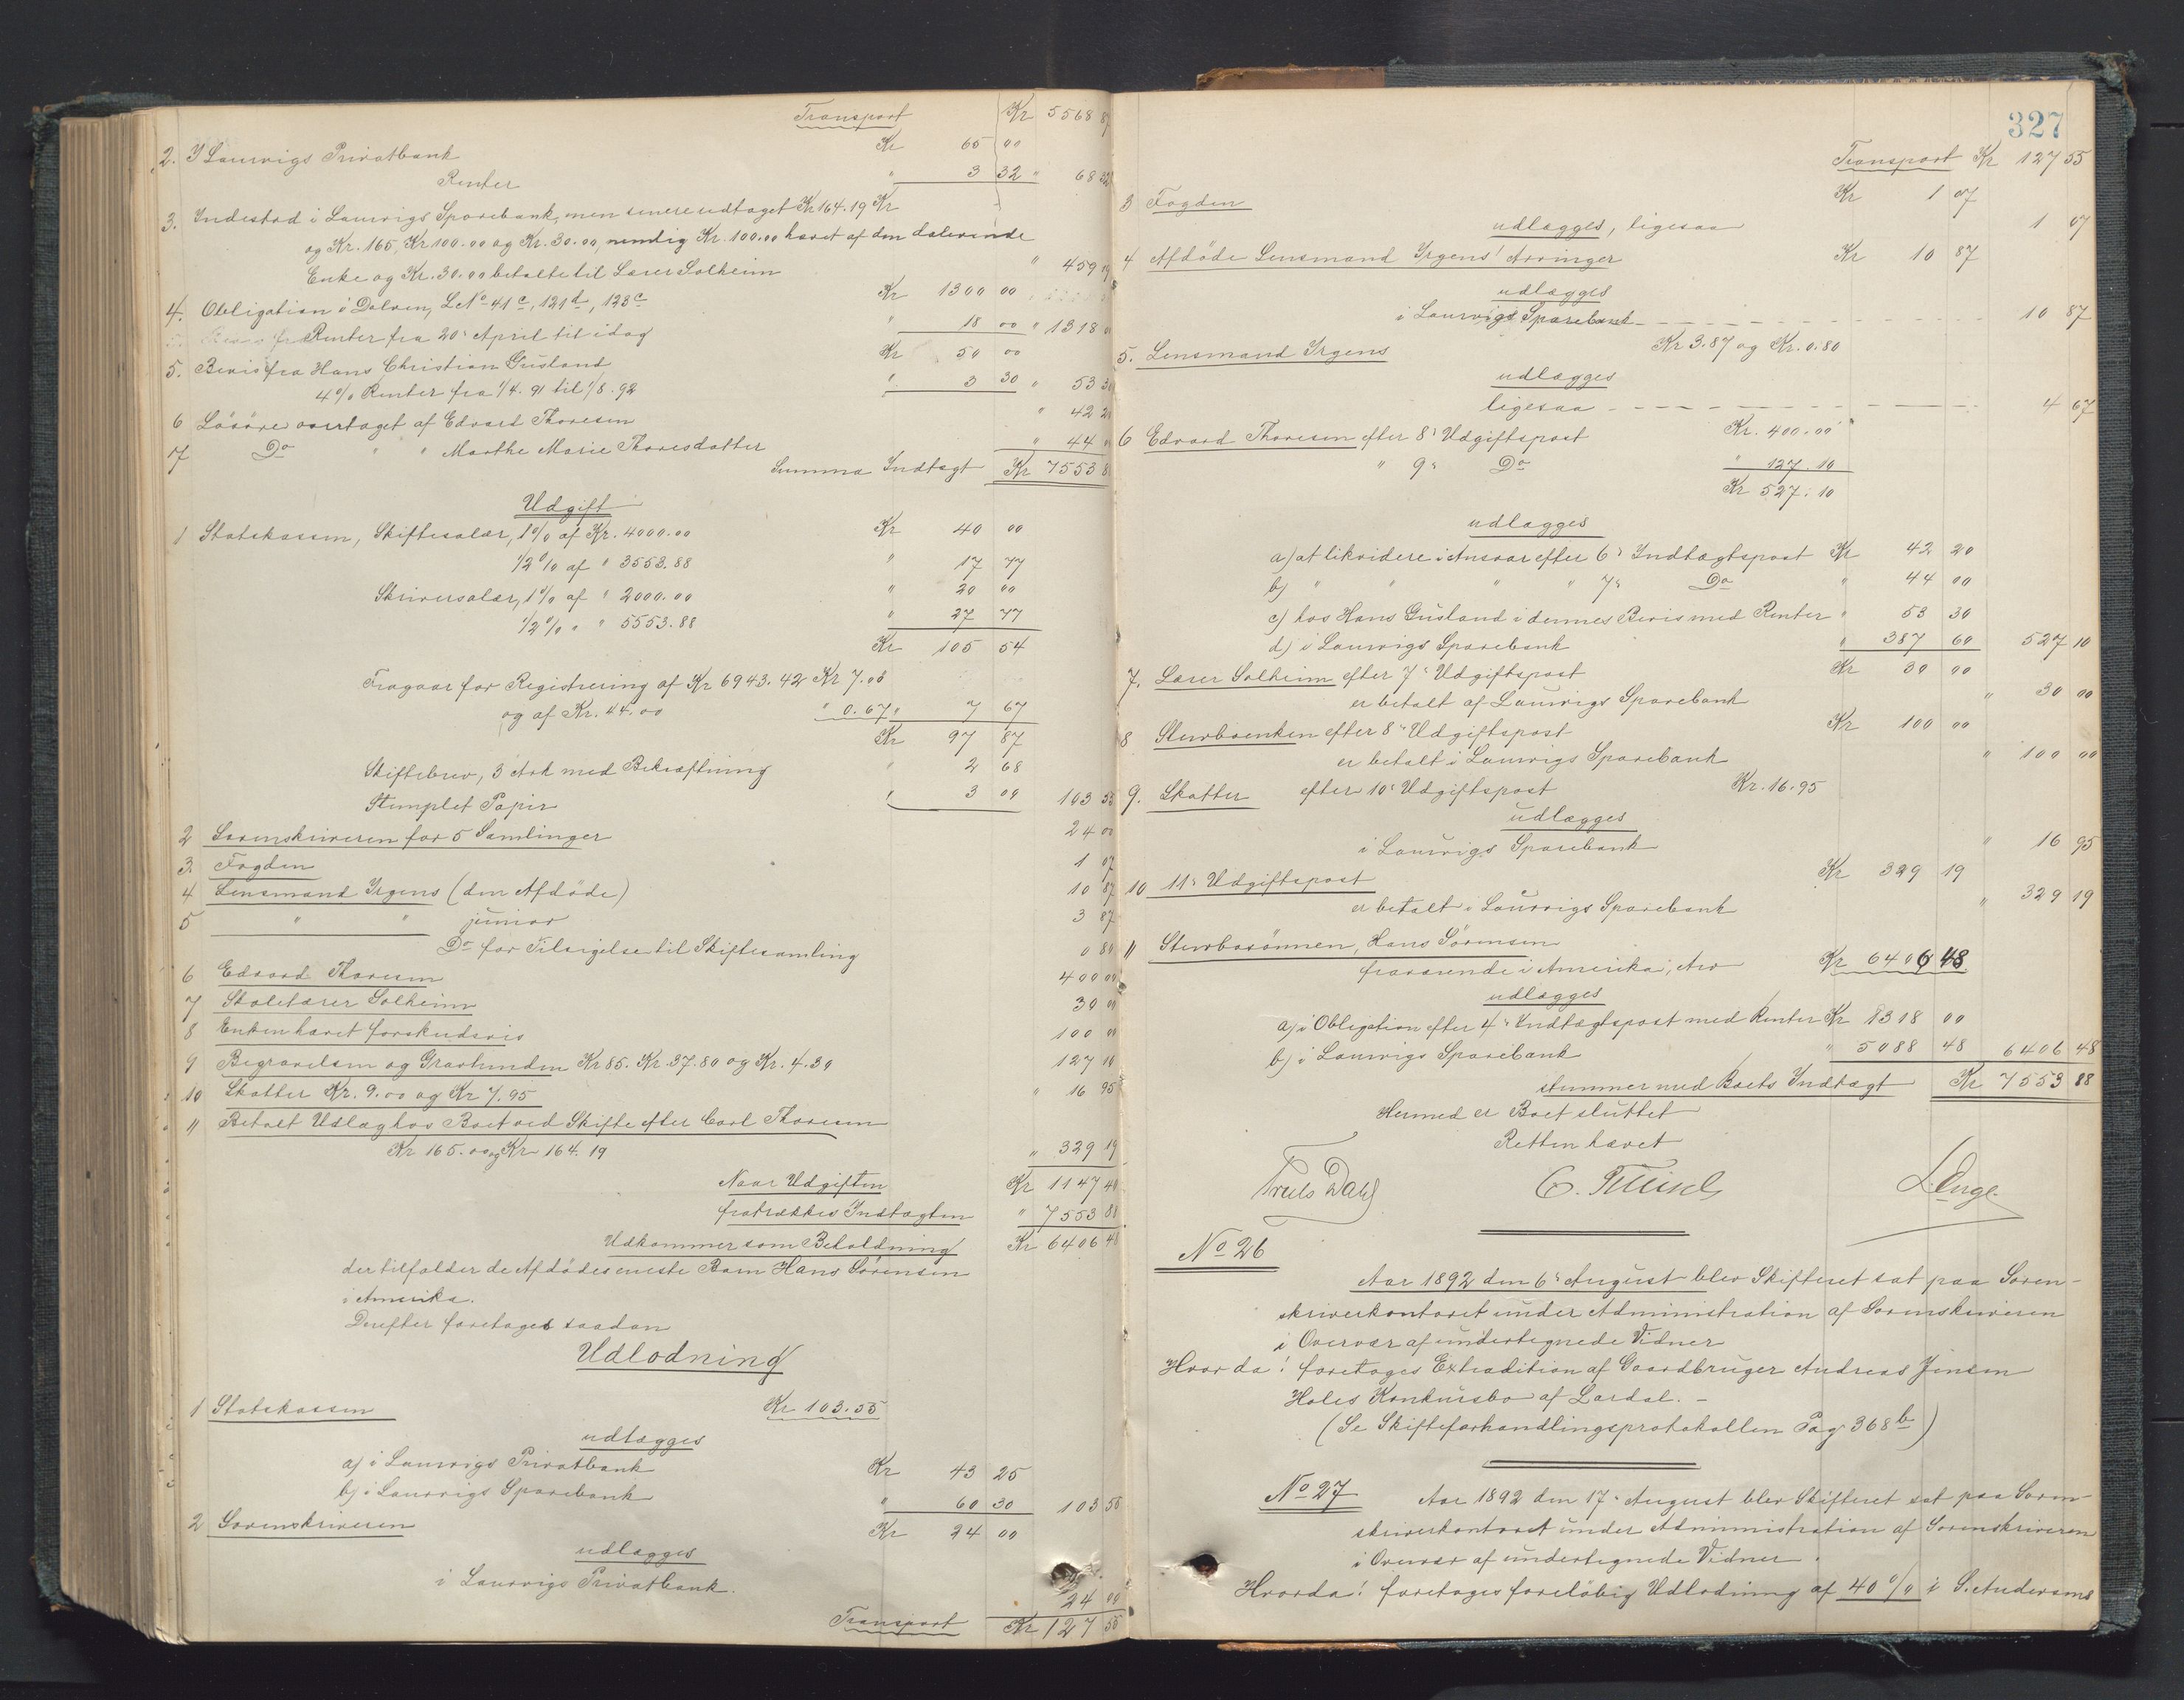 Transport Kr 5568 87
2. I Laurvigs Privatbank Kr 65 00
Renter " 3 32 " 68 32
3. Indestod i Laurvigs Sparebank, men senere udtaget Kr 164.19 Kr
og Kr. 165, Kr 100.00 og Kr. 30.00, nemlig Kr. 100.00 hævet af den dalevende
Enke og Kr. 30.00 betalte til Lærer Solheim " 459 19
4. Obligation i Dolven, LNo 41c, 121d, 123c Kr 1300 00
Renter fra 20de April til idag " 18 00 " 1318 00
5. Bevis fra Hans Christian Gusland Kr 50 00
4% Renter fra 1/4. 91 til 1/8. 92 " 3 30 " 53 30
6 Løsøre overtaget af Edvard Thoresen " 42 20
7 Do " " Marthe Marie Thoresdatter " 44 00
Summa Indtægt Kr 7553 88
Udgift
1 Statskassen, Skiftesalær, 1% af Kr. 4000.00 Kr 40 00
1/2% af " 3553.88 " 17 77
Skriversalær, 1% af " 2000.00 " 20 00
1/2% " " 5553.88 " 27 77
Kr 105 54
Fragaar for Registrering af Kr 6943.42 Kr 7.00
og af Kr. 44.00 " 0.67 " 7 67
Kr 97 87
Skiftebrev, 3 Ark med Bekræftning " 2 68
Stemplet Papir " 3 00 103 55
2 Sorenskriveren for 5 Samlinger 24 00
3. Fogden 1 07
4 Lensmand Irgens (den Afdøde) 10 87
5 " " junior 3 87
Do for Tilsigelse til Skiftesamling 0 80
6 Edvard Thoresen 400 00
7 Skolelærer Solheim 30 00
8 Enken hævet forskudsvis 100 00
9 Begravelsen og Gravhunden Kr 85. Kr. 37.80 og Kr. 4.30 127 10
10 Skatter Kr. 9.00 og Kr 7.95 " 16 95
11 Betalt Udlæg hos Boet ved Skifte efter Carl Thoresen
Kr 165.00 og Kr 164.19 " 329 19
Naar Udgiften Kr 1147 40
fratrækkes Indtægten " 7553 88
Udkommer som Beholdning Kr 6406 48
der tilfalder de Afdødes eneste Barn Hans Sørensen
i Amerika.
Derefter foretoges saadan
Udlodning
1 Statskassen Kr 103.55
udlægges
a) i Laurvigs Privatbank Kr 43 25
b) i Laurvigs Sparebank " 60 30 103 55
2 Sorenskriveren Kr 24 00
udlægges
i Laurvigs Privatbank. 24 00
Transport Kr 127 55
327
Transport Kr 127 55
3 Fogden Kr 1 07
udlægges, ligesaa 1 07
4 Afdøde Lensmand Irgens' Arvinger Kr 10 87
udlægges
i Laurvigs Sparebank 10 87
5. Lensmand Irgens Kr 3.87 og Kr. 0.80
udlægges
ligesaa 4 67
6 Edvard Thoresen efter 8de Udgiftspost Kr. 400.00
" 9de Do " 127.10
Kr 527.10
udlægges
a) at likvidere i Ansvar efter 6te Indtægtspost Kr 42 20
b) " " " " 7de Do " 44 00
c) hos Hans Gusland i dennes Bevis med Renter " 53 30
d) i Laurvigs Sparebank " 387 60 527 10
7. Lærer Solheim efter 7de Udgiftspost Kr 30 00
er betalt af Laurvigs Sparebank " 30 00
8 Stervboenken efter 8de Udgiftspost Kr 100 00
er betalt i Laurvigs Sparebank " 100 00
9. Skatter efter 10de Udgiftspost Kr. 16.95
udlægges
i Laurvigs Sparebank " 16 95
10 11te Udgiftspost Kr 329 19
er betalt i Laurvigs Sparebank " 329 19
11 Stervbosønnen, Hans Sørensen
fraværende i Amerika, Arv Kr 6406 48
udlægges
a) i Obligation efter 4de Indtægtspost med Renter Kr 1318 00
b) i Laurvigs Sparebank " 5088 48 6406 48
stemmer med Boets Indtægt Kr 7553 88
Hermed er Boet sluttet
Retten hævet
Truls Dahl L. Enge
No 26
Aar 1892 den 6te August blev Skifteret sat paa Soren-
skriverkontoret under Administration af Sorenskriveren
i Overvær af undertegnede Vidner
Hvorda! foretoges Extradition af Gaardbruger Andreas Jensen
Holes Konkursbo af Lardal. -
(Se Skifteforhandlingsprotokollen Pag 368b)
No 27 Aar 1892 den 17de August blev Skifteret sat paa Soren-
skriverkontoret under Administration af Sorenskriveren
i Overvær af undertegnede Vidner.
Hvorda! foretoges foreløbig Udlodning af 40% i S. Andersens